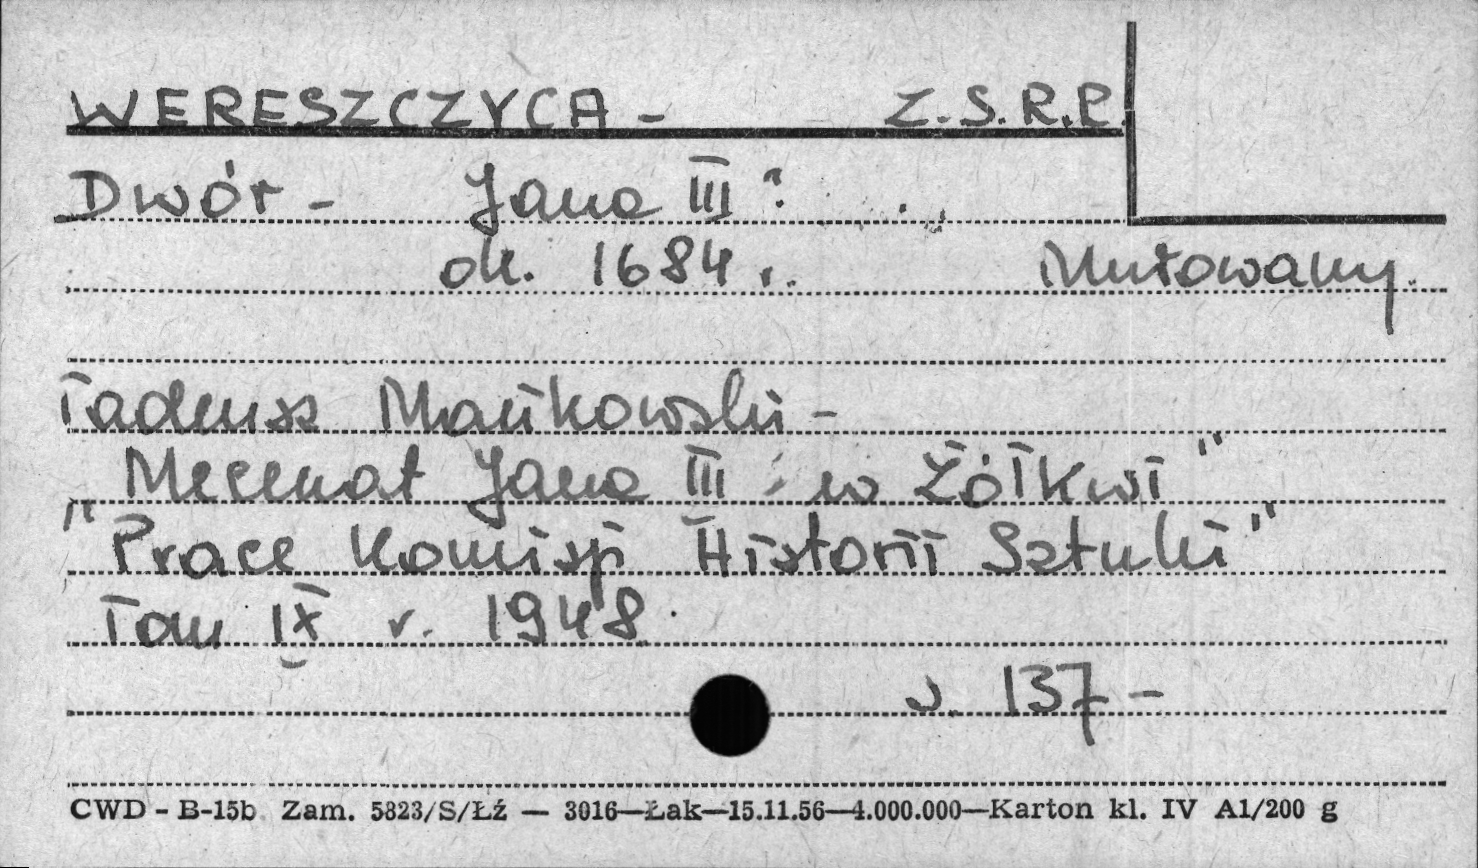 WERESZCZYCA - Z.S.R.R.
Dwór - Jana III:
ok. 1684 r. Murowany.
Tadeusz Mańkowski -
Mecenat Jana III w Żółkwi"
"Prace Komisji Historii Sztuki"
Tom IX r. 1948.
s. 137 -
CWD - B-15b Zam. 5823/S/Łź — 3016—Łak—15.11.56—4.000.000—Karton kl. IV A1/200 g